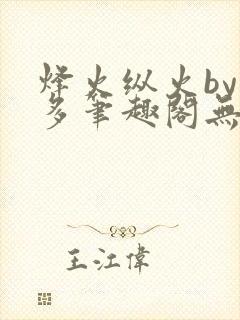 烽火纵火by
多筆趣閣無
王江偉